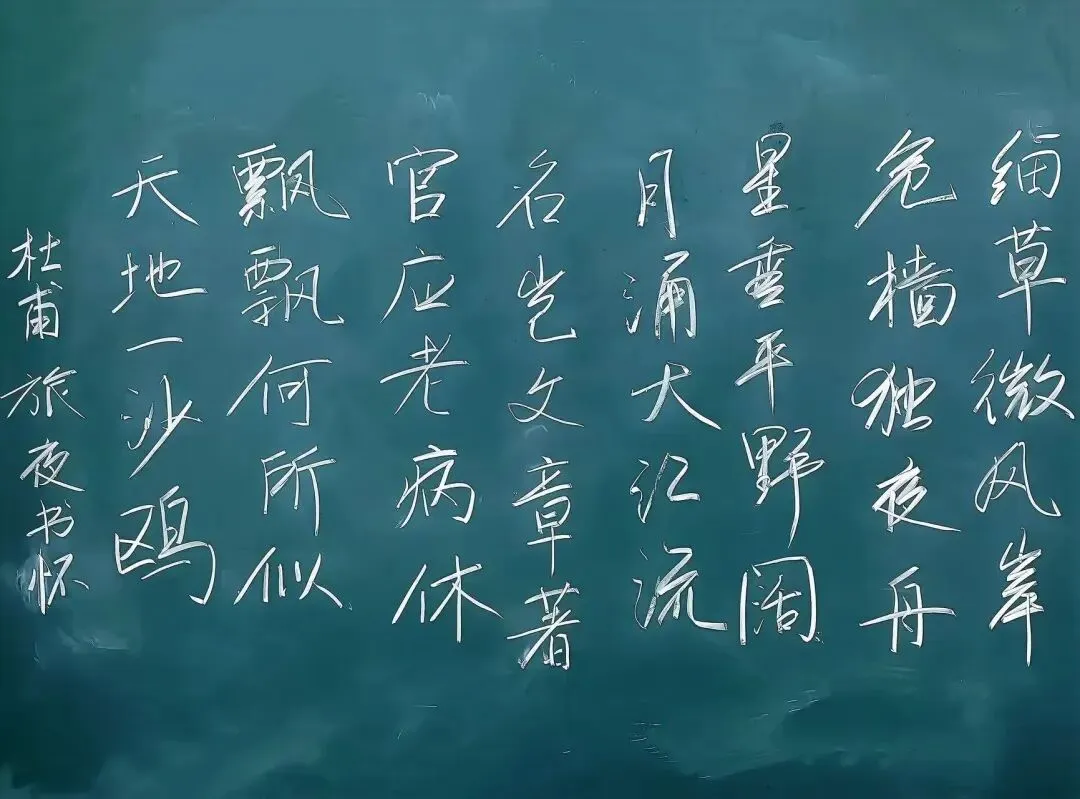 细草微风岸
危樯独夜舟
星垂平野阔
月涌大江流
名岂文章著
官应老病休
飘飘何所似
天地一沙鸥
杜甫 旅夜书怀